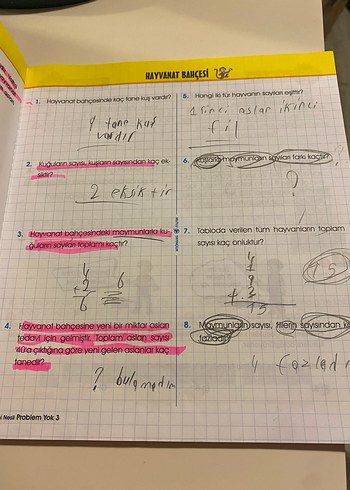 HAYVANAT BAHÇESİ
1. Hayvanat bahçesinde kaç tane kuş vardır?
4 tane kuş
vardır
2. Kuğuların sayısı, kuşların sayısından kaç ek
siktir?
2 eksiktir
3. Hayvanat bahçesindeki maymunlarla ku
ğuların sayıları toplamı kaçtır?
4
+2
6
6
4. Hayvanat bahçesine yeni bir miktar aslan
tedavi için gelmiştir. Toplam aslan sayısı
40'a çıktığına göre yeni gelen aslanlar kaç
tanedir?
? bulamadım
5. Hangi iki tür hayvanın sayıları eşittir?
1 birinci aslan ikinci
fil
6. Kuşlarla maymunların sayıları farkı kaçtır?
?
7. Tabloda verilen tüm hayvanların toplam
sayısı kaç onluktur?
+
15
15
8. Maymunların sayısı, fillerin sayısından k
fazladır?
4 fazladır
i Nesil Problem Yok 3